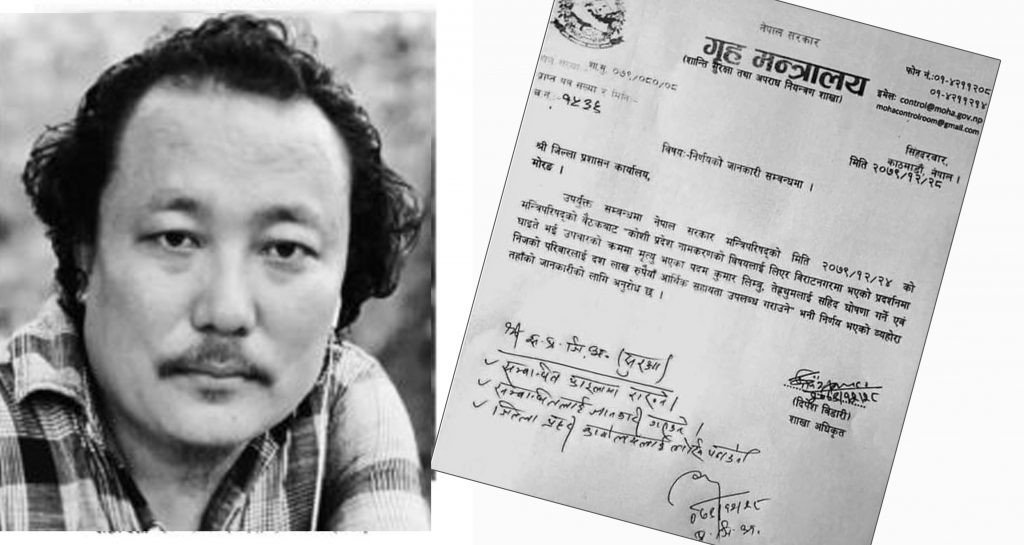 नेपाल सरकार
गृह मन्त्रालय
(शान्ति सुरक्षा तथा अपराध नियन्त्रण शाखा)
फोन नं.:०१-४२११२०८
०१-४२११२१४
इमेल: control@moha.gov.np
mohacontrolroom@gmail.com
पत्र संख्या: शा.सु. ०७९/०८०/०८
प्राप्त पत्र संख्या र मिति:-
च.नं.:-१५३६
सिंहदरबार,
काठमाडौं, नेपाल ।
मिति २०७९/१२/२८
विषय:-निर्णयको जानकारी सम्बन्धमा ।
श्री जिल्ला प्रशासन कार्यालय,
मोरङ ।
उपर्युक्त सम्बन्धमा नेपाल सरकार मन्त्रिपरिषद्को मिति २०७९/१२/२४ को
मन्त्रिपरिषद्को बैठकबाट "कोशी प्रदेश नामकरणको विषयलाई लिएर बिराटनगरमा भएको प्रदर्शनमा
घाइते भई उपचारको क्रममा मृत्यु भएका पदम कुमार लिम्बु, तेह्रथुमलाई सहिद घोषणा गर्ने एवं
निजको परिवारलाई दश लाख रुपैयाँ आर्थिक सहायता उपलब्ध गराउने" भनी निर्णय भएको व्यहोरा
तहाँको जानकारीको लागि अनुरोध छ ।
(दिपेश बिडारी)
शाखा अधिकृत
सम्बन्धित फाइलमा राख्ने ।
सम्बन्धितलाई जानकारी गराउने ।
प्र.जि.अ.